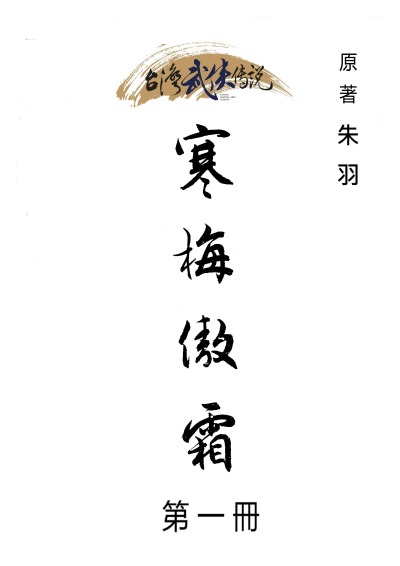 台灣武俠传说
原著 朱羽
寒梅傲霜
第一冊